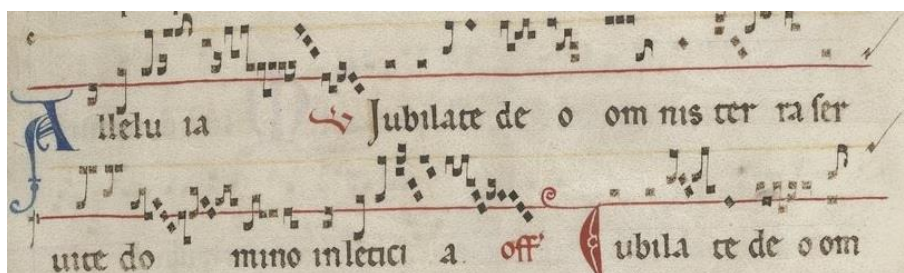 Allelu ia V Jubilate de o om nis ter ra ser
uite do mino in letici a. off' Iubila te de o om